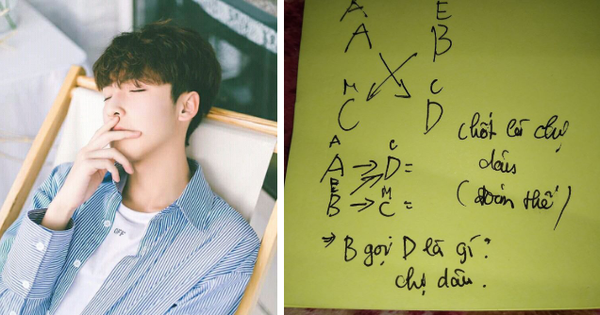 OFF
A E
A B
M C
C D
A C
A → D =
E M
B → C =
chốt là chị
dâu
(Đoán thế)
⇒ B gọi D là gì?
chị dâu.